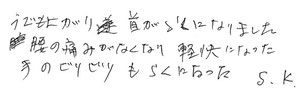 うでもよがり 首がらくになりました
腰の痛みがなくなり 軽快になった
手のビリビリもらくになった S.K.